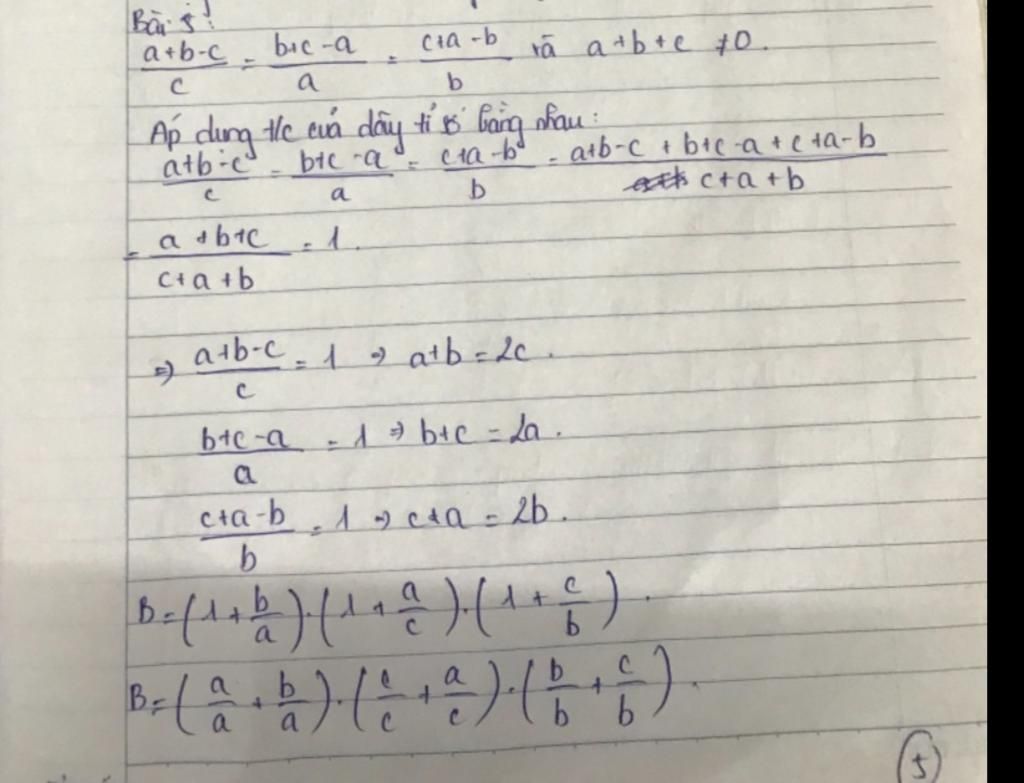 Bài 5:
(a+b-c)/c = (b+c-a)/a = (c+a-b)/b và a+b+c ≠0.
Áp dụng t/c của dãy tỉ số bằng nhau:
(a+b-c)/c = (b+c-a)/a = (c+a-b)/b = (a+b-c+b+c-a+c+a-b)/(c+a+b)
= (a+b+c)/(c+a+b) = 1.
⇒ (a+b-c)/c = 1 ⇒ a+b = 2c.
(b+c-a)/a = 1 ⇒ b+c = 2a.
(c+a-b)/b = 1 ⇒ c+a = 2b.
B = (1 + b/a).(1 + a/c).(1 + c/b).
B = (a/a + b/a).(c/c + a/c).(b/b + c/b).
5